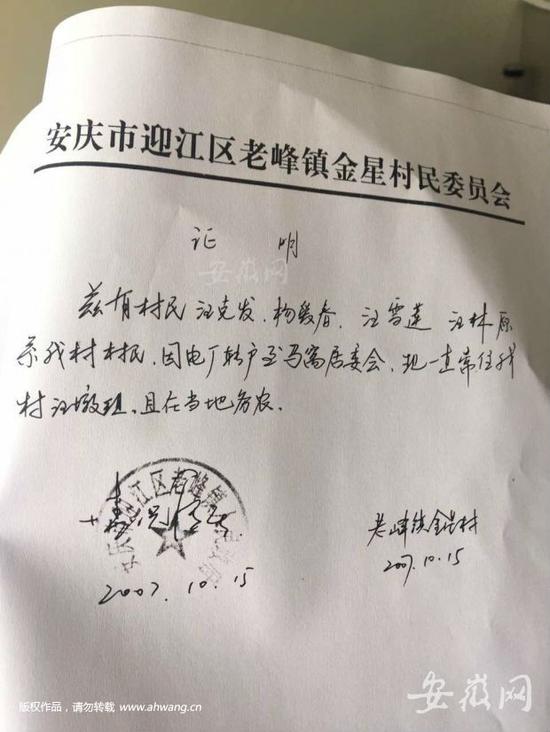 安庆市迎江区老峰镇金星村民委员会
证 明
安徽网
兹有村民汪克发、杨爱春、汪雪莲 汪林原
系我村村民,因电厂转户至马窝居委会,现一直常住我
村汪墩组,且在当地务农。
迎江区老峰镇
老峰镇金星村
2007.10.15
2007.10.15
安徽网
版权作品,请勿转载 www.ahwang.cn